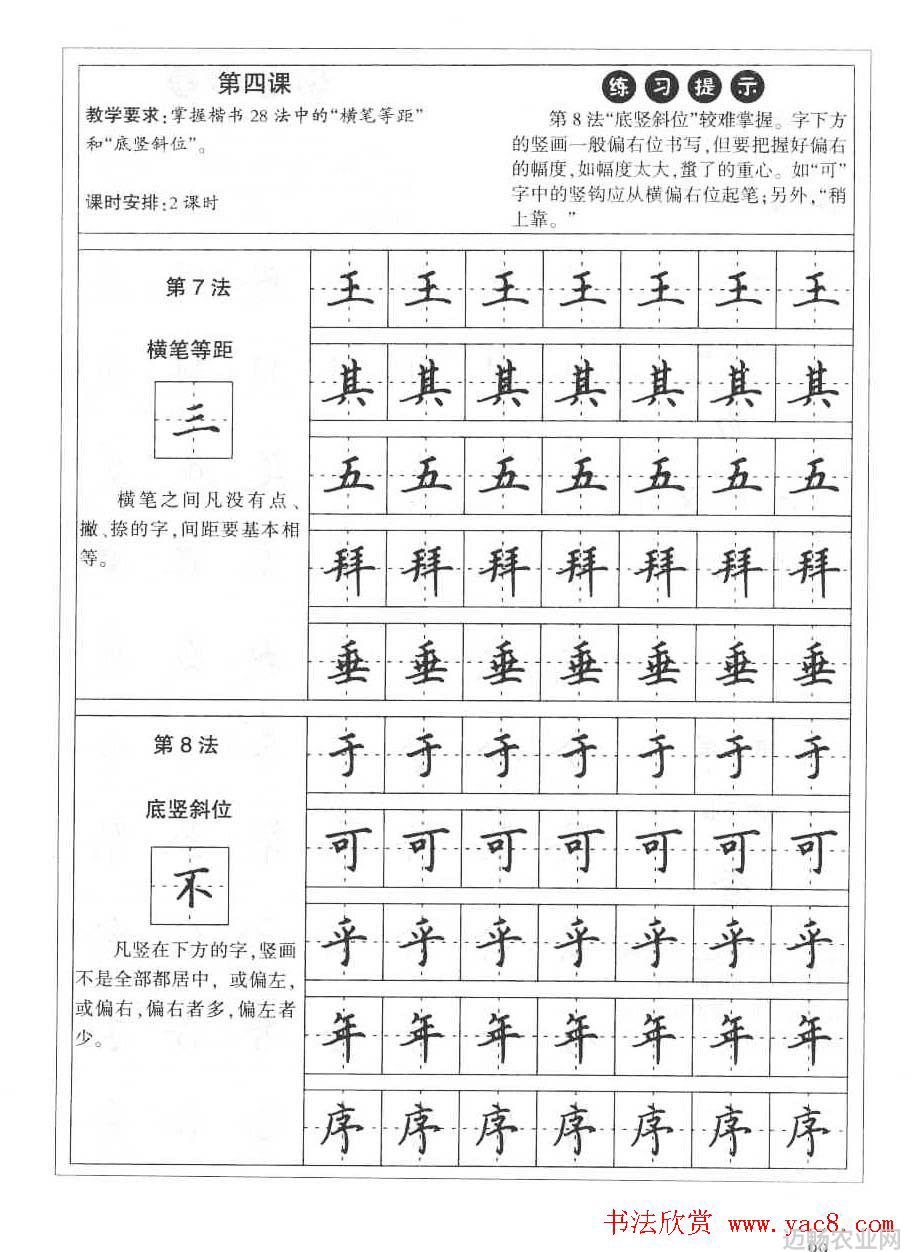 第四课
教学要求:掌握楷书28法中的“横笔等距”
和“底竖斜位”。
课时安排:2课时
练习提示
第8法“底竖斜位”较难掌握。字下方
的竖画一般偏右位书写,但要把握好偏右
的幅度,如幅度太大,蜇了的重心。如“可”
字中的竖钩应从横偏右位起笔;另外,“稍
上靠。”
第7法
横笔等距
三
横笔之间凡没有点、
撇、捺的字,间距要基本相
等。
王王王王王王王
其其其其其其其
五五五五五五五
拜拜拜拜拜拜拜
垂垂垂垂垂垂垂
第8法
底竖斜位
不
凡竖在下方的字,竖画
不是全部都居中,或偏左,
或偏右,偏右者多,偏左者
少。
于于于于于于于
可可可可可可可
乎乎乎乎乎乎乎
年年年年年年年
序序序序序序序
书法欣赏 www.yac8.com
迈畅农业网